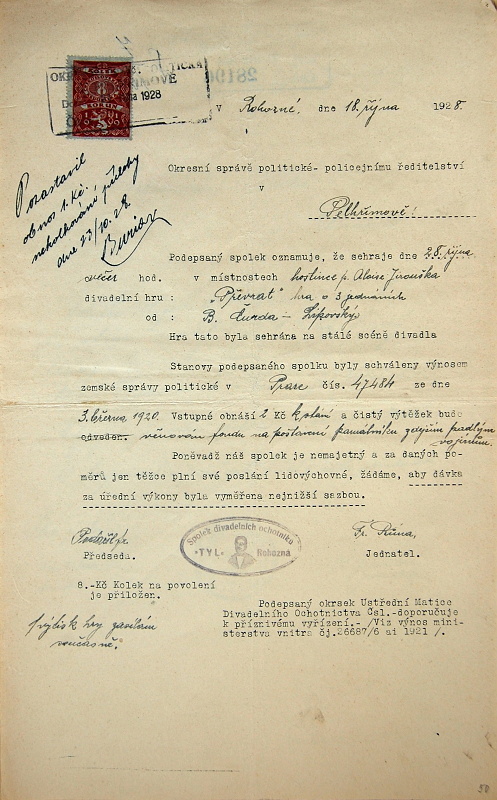 OKR POLITICKÁ
1928
KOLEK
8
KORUN
V Rohozné, dne 18. října 1928.
Pozastavil
obnos 1.Kč.
nekolkování přílohy
dne 23/10.28
Okresní správě politické- policejnímu ředitelství
v
Pelhřimově!
Podepsaný spolek oznamuje, že sehraje dne 28. října
večer hod. v místnostech hostince p. Aloise Jirouška
divadelní hru : „Převrat" hra o 3 jednáních
od : B. Čunda - Lipovský
Hra tato byla sehrána na stálé scéně divadla
Stanovy podepsaného spolku byly schváleny výnosem
zemské správy politické v Praze čís. 47484 ze dne
3. března 1920. Vstupné obnáší 2 Kč k stání a čistý výtěžek bude
odveden. věnován fondu na postavení památníku zdejším padlým
vojínům.
Poněvadž náš spolek je nemajetný a za daných po-
měrů jen těžce plní své poslání lidovýchovné, žádáme, aby dávka
za úřední výkony byla vyměřena nejnižší sazbou.
Spolek divadelních ochotníků
"TYL"
Rohozna
Fr. Růna,
Předseda.
Jednatel.
8.-Kč Kolek na povolení
je přiložen.
1 výtisk hry zasílám
současně.
Podepsaný okrsek Ústřední Matice
Divadelního Ochotnictva Čsl.-doporučuje
k příznivému vyřízení.- /Viz výnos mini-
sterstva vnitra čj.26687/6 ai 1921 /.
50